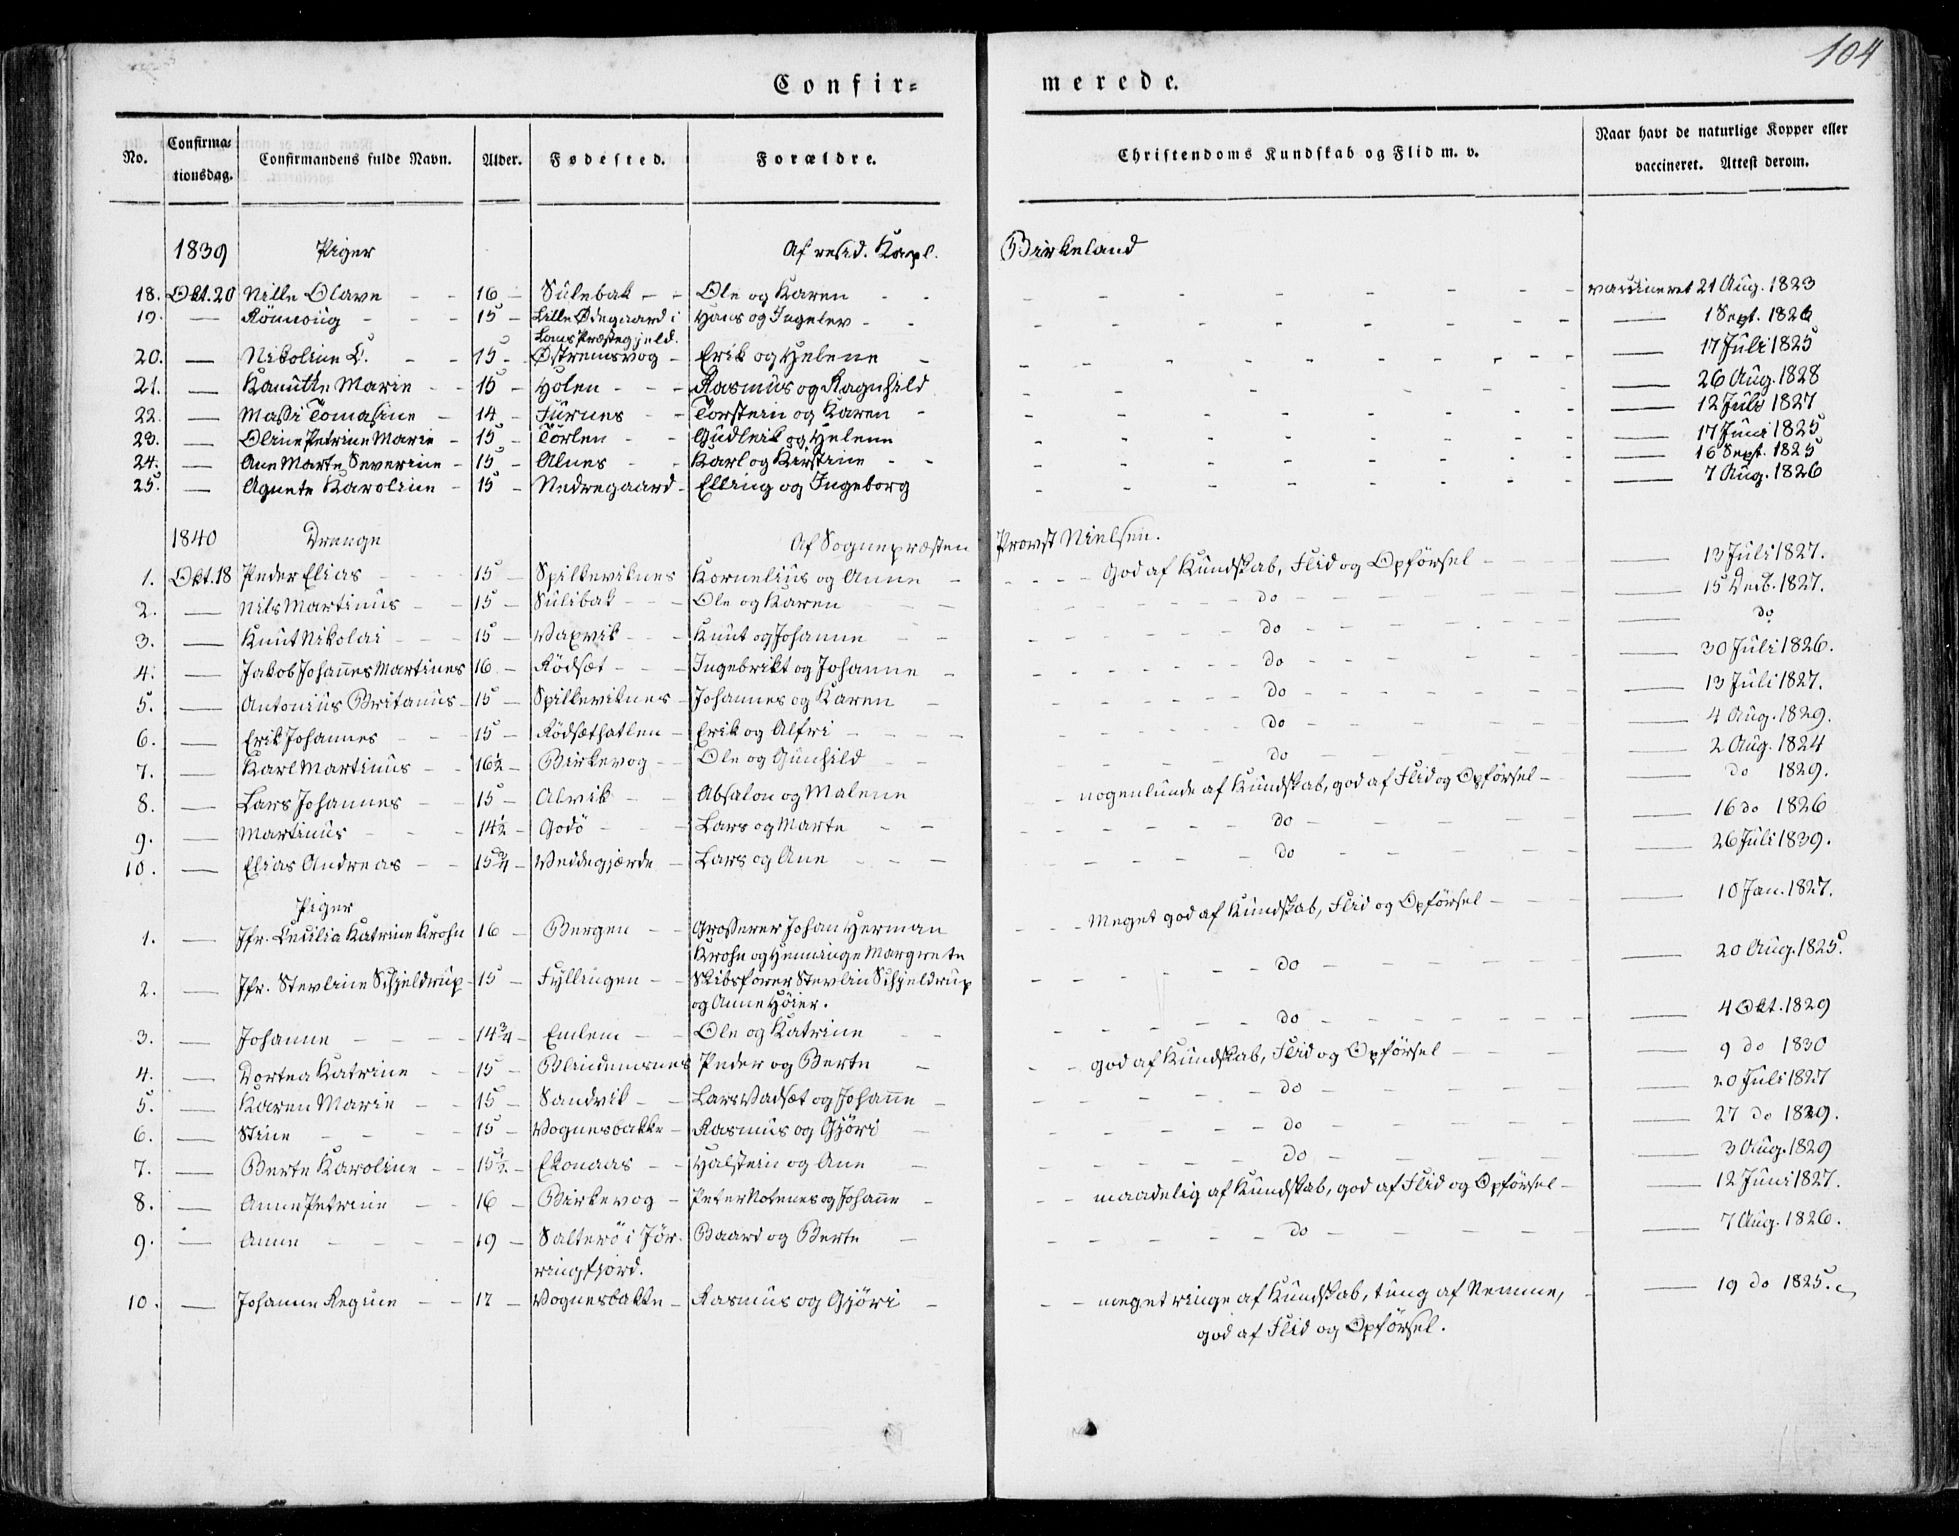 104
Confir-
merede.
No.
Confirma-
tionsdag.
Confirmandens fulde Navn.
Alder.
Fødested.
Forældre.
Christendoms Kundskab og Flid m. v.
Naar havt de naturlige Kopper eller
vaccineret. Attest derom.
1839 Piger Af resid. Kapl. Birkeland
18. Okt. 20 Nille Olave 16 Sulebak Ole og Karen vaccineret 21 Aug. 1823
19. — Rönnoug 15 Lille Ødegaard i Hans og Ingelev — 1 Sept. 1826
Loms Præstegjeld.
20. — Nikoline L. 15 Østremsvog Erik og Helene — 17 Juli 1825
21. — Kanutte Marie 15 Holen Rasmus og Ragnhild — 26 Aug. 1828
22. — Massi Tomasine 14 Furnes Torstein og Karen — 12 Juli 1827
23. — Oline Petrine Marie 15 Törlen Gudleik og Helene — 17 Juni 1825
24. — Ane Marte Severine 15 Alnes Karl og Kirstine — 16 Sept. 1825
25. — Agnete Karoline 15 Nedregaard Elling og Ingeborg — 7 Aug. 1826
1840 Drenge Af Sognepræsten Provst Nielsen.
1. Okt. 18 Peder Elias 15 Spilkeviknes Kornelius og Anne God af Kundskab, Flid og Opførsel — 13 Juli 1827.
2. — Nils Martinus 15 Sulibak Ole og Karen do — 15 Decb. 1827.
3. — Knut Nikolai 15 Vaxvik Knut og Johanne do — do
4. — Jakob Johan̄es Martines 16 Rödsæt Ingebrikt og Johanne do — 30 Juli 1826.
5. — Antonius Britanus 15 Spilkeviknes Johannes og Karen do — 13 Juli 1827.
6. — Erik Johannes 15 Rödsæthatlen Erik og Alfri do — 4 Aug. 1829.
7. — Karl Martinus 16½ Birkevog Ole og Gunhild do — 2 Aug. 1824
8. — Lars Johannes 15 Alvik Absalon og Malene nogenlunde af Kundskab, god af Flid og Opførsel — do 1829.
9. — Martinus 14½ Godö Lars og Marte do — 16 do 1826
10. — Elias Andreas 15¾ Veddegjærde Lars og Ane do — 26 Juli 1839.
Piger
1. — Jfr. Cecilia Katrine Krohn 16 Bergen Grosserer Johan Herman Meget god af Kundskab, Flid og Opførsel — 10 Jan. 1827.
Krohn og Henninge Margrete
2. — Jfr. Stevline Schjeldrup 15 Fyllingen Skibsfører Stevlin Schjeldrup do — 20 Aug. 1825.
og Anne Höier.
3. — Johanne 14¾ Emlem Ole og Katrine do — 4 Okt. 1829
4. — Dortea Katrine 15 Blindemsnes Peder og Berte god af Kundskab, Flid og Opførsel — 9 do 1830
5. — Karen Marie 15 Sandvik Lars Vadsæt og Johan̄e do — 20 Juli 1827
6. — Stine 15 Vognesbakke Rasmus og Gjöri do — 27 do 1829.
7. — Berte Karoline 15½ Ekonaas Halstein og Ane do — 3 Aug. 1829
8. — Anne Petrine 16 Birkevog Peter Notenes og Johan̄e maadelig af Kundskab, god af Flid og Opførsel — 12 Juni 1827.
9. — Anne 19 Salterö i Jör- Baard og Berte do — 7 Aug. 1826.
ringfjord.
10. — Johanne Regine 17 Vognesbakke Rasmus og Gjöri meget ringe af Kundskab, tung af Nemme, — 19 do 1825.
god af Flid og Opførsel.